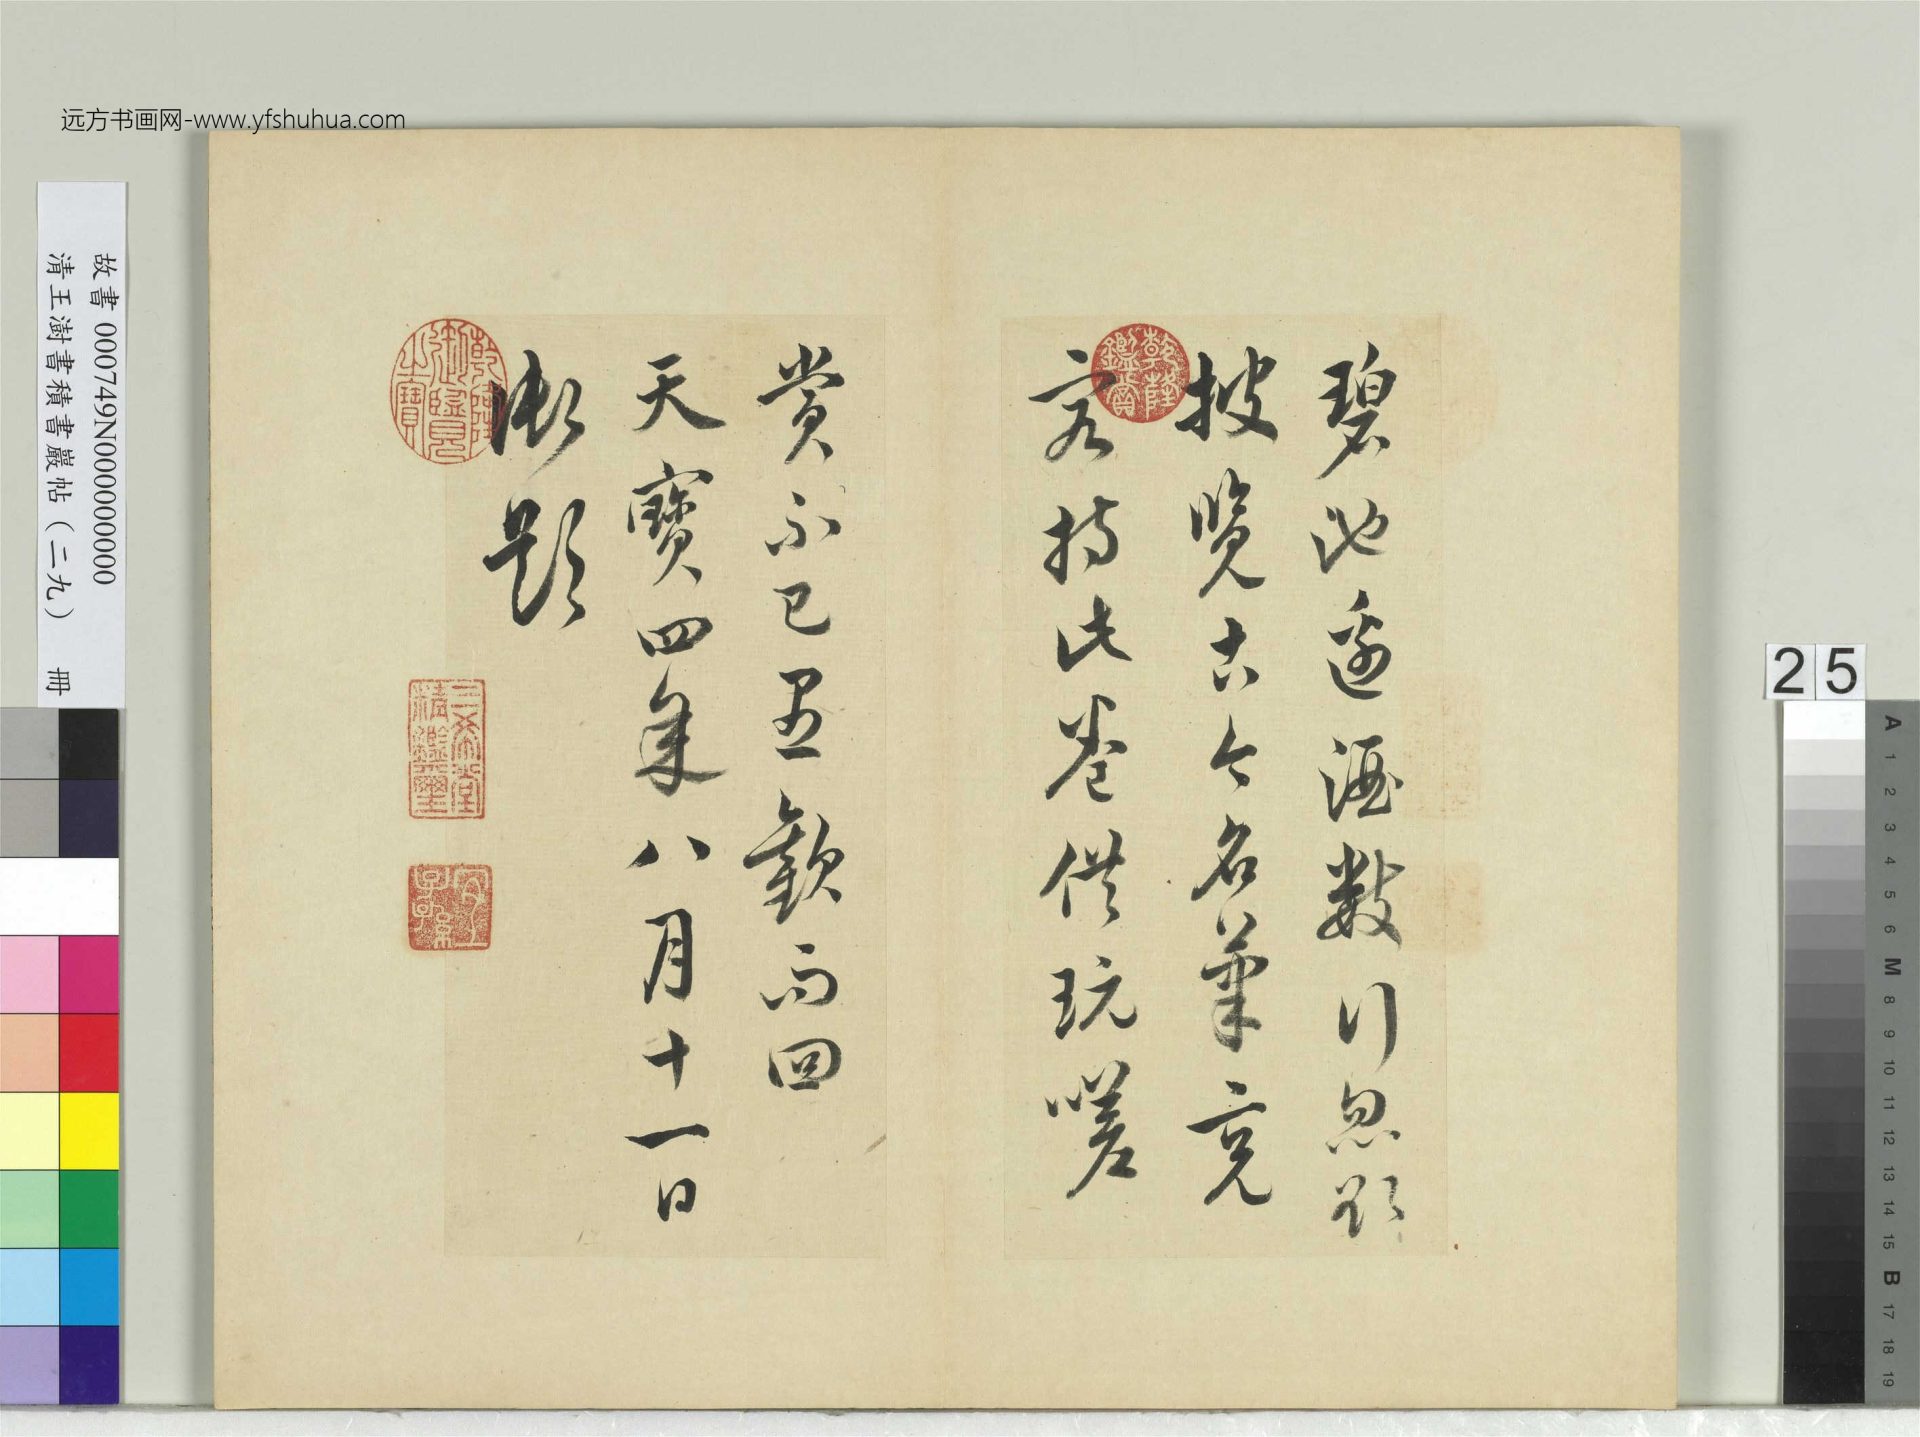 远方书画网-www.yfshuhua.com
故書 000749N000000000
清王澍書積書巖帖（二九） 冊
碧池邊酒數行忽
披覽古今名筆
持此卷供玩嗟
賞不已盡歡而回
天寶四年八月十一日
御題
乾隆鑑賞
乾隆御覽之寶
三希堂精鑑璽
宜子孫
25
A
1
2
3
4
5
6
M
8
9
10
11
12
13
14
15
B
17
18
19